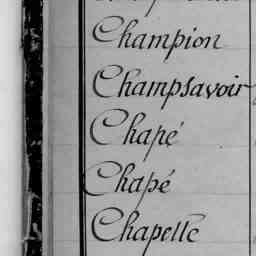 Champion
Champsavoir
Chapé
Chapé
Chapelle